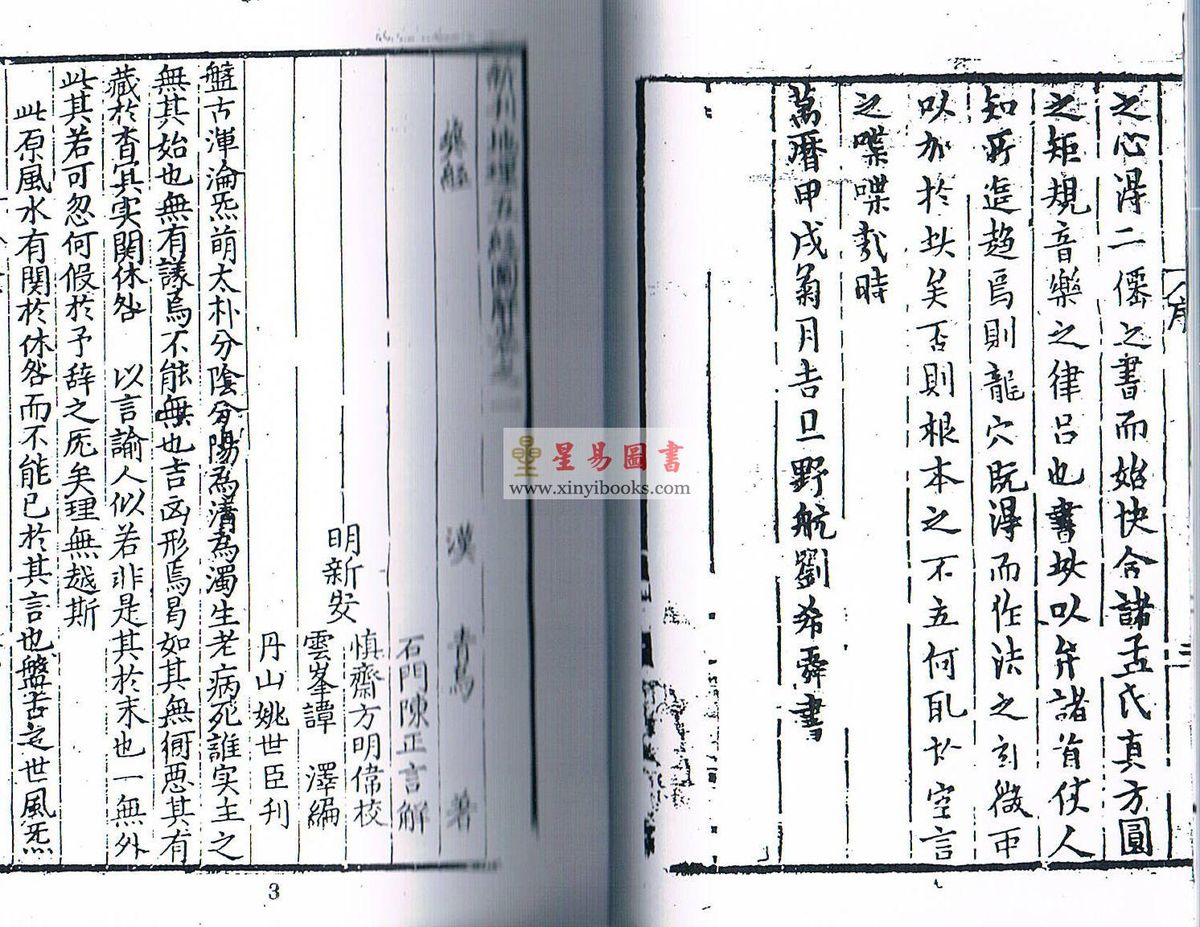 序
之心得二僊之書而始快合諸孟氏真方圓
之矩規音樂之律呂也書此以弁諸首使人
知所造趨焉則龍穴既得而作法之
以加於此矣否則根本之不立何取於空言
之喋喋哉時
萬曆甲戌菊月吉旦野航劉希舜書
三
地理五經圖解
漢 青烏 著
石門陳正言解
慎齋方明偉校
明新安
雲峯譚 澤編
丹山姚世臣刋
盤古渾淪炁萌太朴分陰分陽為清為濁生老病死誰實主之
無其始也無有議焉不能無也吉凶形焉曷如其無何惡其有
藏於杳冥實関休咎 以言諭人似若非是其於末也一無外
此其若可忽何假於予辞之厖矣理無越斯
此原風水有関於休咎而不能已於其言也盤古之世風炁
3
星易圖書
www.xinyibooks.com